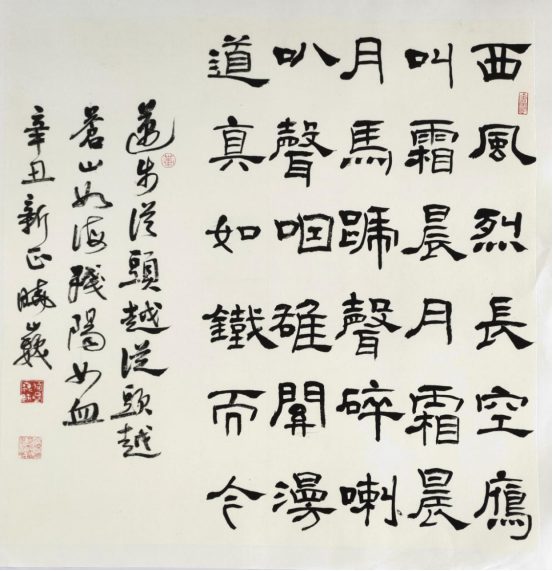 西風烈長空鴈
叫霜晨月霜晨
月馬蹄聲碎喇
叭聲咽雄關漫
道真如鐵而今
邁步從頭越從頭越
蒼山如海殘陽如血
辛丑新正曉